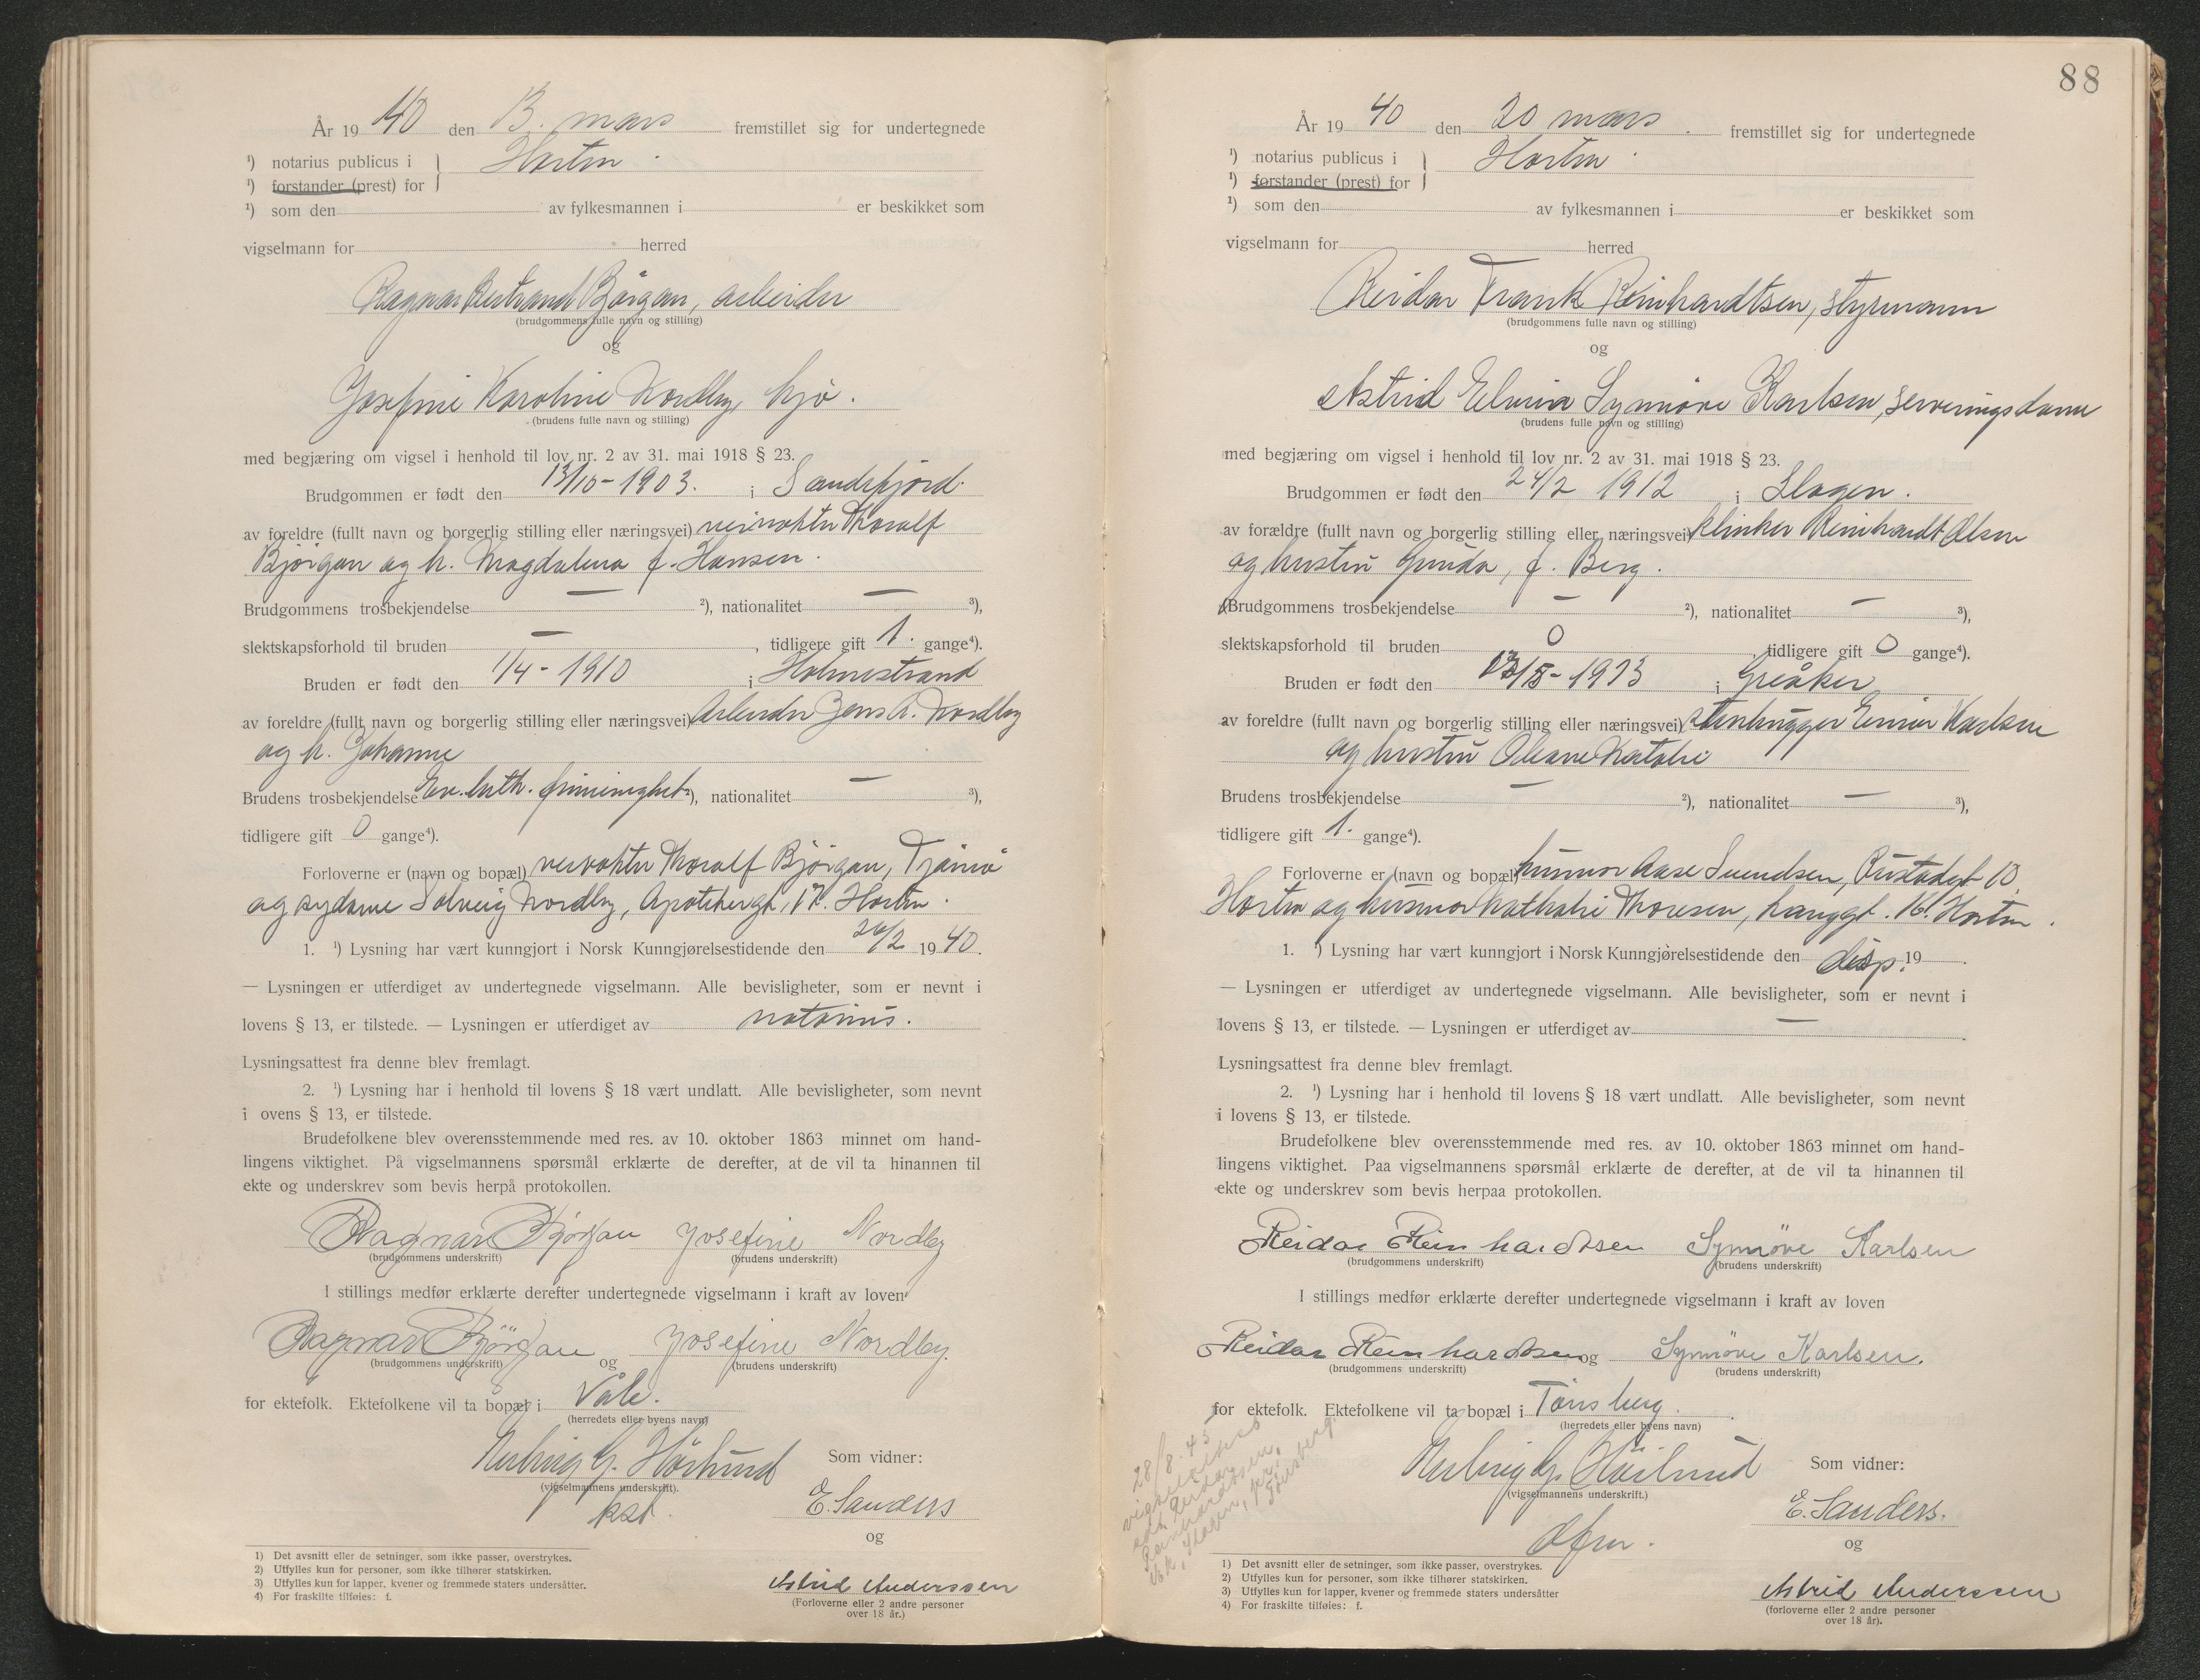 År 1940 den 13. mars fremstillet sig for undertegnede
¹) notarius publicus i
¹) forstander (prest) for
Horten.
¹) som den av fylkesmannen i er beskikket som
vigselmann for herred
Ragnar Bertrand Bjørgan, arbeider
(brudgommens fulle navn og stilling)
og
Josefine Karoline Nordby, hjv.
(brudens fulle navn og stilling)
med begjæring om vigsel i henhold til lov nr. 2 av 31. mai 1918 § 23.
Brudgommen er født den 13/10-1903. i Sandefjord.
av foreldre (fullt navn og borgerlig stilling eller næringsvei) veivokter Thoralf
Bjørgan og h. Magdalena f. Hansen.
Brudgommens trosbekjendelse — ²), nationalitet — ³),
slektskapsforhold til bruden —, tidligere gift 1. gange⁴).
Bruden er født den 1/4-1910 i Holmestrand
av foreldre (fullt navn og borgerlig stilling eller næringsvei) Arbeider Jens A. Nordby
og h. Johanne
Brudens trosbekjendelse Ev. luth. frimenighet ²), nationalitet — ³),
tidligere gift 0 gange⁴).
Forloverne er (navn og bopæl) veivokter Thoralf Bjørgan, Tjømø
og sydame Solveig Nordby, Apotekergt. 17. Horten.
1. ¹) Lysning har vært kunngjort i Norsk Kunngjørelsestidende den 26/2 1940.
— Lysningen er utferdiget av undertegnede vigselmann. Alle bevisligheter, som er nevnt i
lovens § 13, er tilstede. — Lysningen er utferdiget av notarius.
Lysningsattest fra denne blev fremlagt.
2. ¹) Lysning har i henhold til lovens § 18 vært undlatt. Alle bevisligheter, som nevnt
i ovens § 13, er tilstede.
Brudefolkene blev overensstemmende med res. av 10. oktober 1863 minnet om hand-
lingens viktighet. På vigselmannens spørsmål erklærte de derefter, at de vil ta hinannen til
ekte og underskrev som bevis herpå protokollen.
Ragnar Bjørgan Josefine Nordby
(brudgommens underskrift) (brudens underskrift)
I stillings medfør erklærte derefter undertegnede vigselmann i kraft av loven
Ragnar Bjørgan og Josefine Nordby.
(brudgommens underskrift) (brudens underskrift)
for ektefolk. Ektefolkene vil ta bopæl i Våle.
(herredets eller byens navn)
Som vidner:
(vigselmannens underskrift).
kst.
E. Sanders
og
Astrid Anderssen
(Forloverne eller 2 andre personer
over 18 år.)
1) Det avsnitt eller de setninger, som ikke passer, overstrykes.
2) Utfylles kun for personer, som ikke tilhører statskirken.
3) Utfylles kun for lapper, kvener og fremmede staters undersåtter.
4) For fraskilte tilføies: f.
88
År 1940 den 20 mars. fremstillet sig for undertegnede
¹) notarius publicus i
¹) forstander (prest) for
Horten.
¹) som den av fylkesmannen i er beskikket som
vigselmann for herred
Reidar Frank Reinhardtsen, styrmann
(brudgommens fulle navn og stilling)
og
Astrid Elvira Synnøve Karlsen, serveringsdame
(brudens fulle navn og stilling)
med begjæring om vigsel i henhold til lov nr. 2 av 31. mai 1918 § 23.
Brudgommen er født den 24/2 1912 i Slagen.
av forældre (fullt navn og borgerlig stilling eller næringsvei) klinker Reinhardt Olsen
og hustru Gunda, f. Berg.
Brudgommens trosbekjendelse — ²), nationalitet — ³),
slektskapsforhold til bruden 0, tidligere gift 0 gange⁴).
Bruden er født den i Greåker
av foreldre (fullt navn og borgerlig stilling eller næringsvei) stenhugger Karlsen
og hustru Oleane Natalie
Brudens trosbekjendelse — ²), nationalitet — ³),
tidligere gift 1. gange⁴).
Forloverne er (navn og bopæl) husmor Aase Svendsen, Rustadgt 10.
Horten og husmor Nathalie Thoresen, Langgt. 16. Horten.
1. ¹) Lysning har vært kunngjort i Norsk Kunngjørelsestidende den disp. 19
— Lysningen er utferdiget av undertegnede vigselmann. Alle bevisligheter, som er nevnt i
lovens § 13, er tilstede. — Lysningen er utferdiget av —
Lysningsattest fra denne blev fremlagt.
2. ¹) Lysning har i henhold til lovens § 18 vært undlatt. Alle bevisligheter, som nevnt
i lovens § 13, er tilstede.
Brudefolkene blev overensstemmende med res. av 10. oktober 1863 minnet om hand-
lingens viktighet. Paa vigselmannens spørsmål erklærte de derefter, at de vil ta hinannen til
ekte og underskrev som bevis herpaa protokollen.
Reidar Reinhardtsen Synnøve Karlsen
(brudgommens underskrift) (brudens underskrift)
I stillings medfør erklærte derefter undertegnede vigselmann i kraft av loven
Reidar Reinhardtsen og Synnøve Karlsen.
(brudgommens underskrift) (brudens underskrift)
for ektefolk. Ektefolkene vil ta bopæl i Tønsberg.
(herredets eller byens navn)
28/8.45
vigselattest
Reidar
Reinhardtsen,
Slagen, pr. Tønsberg.
Som vidner:
(vigselmannens underskrift.)
E. Sanders.
og
Astrid Anderssen
(forloverne eller 2 andre personer
over 18 år).
1) Det avsnitt eller de setninger, som ikke passer, overstrykes.
2) Utfylles kun for personer, som ikke tilhører statskirken.
3) Utfylles kun for lapper, kvener og fremmede staters undersåtter
4) For fraskilte tilføies: f.